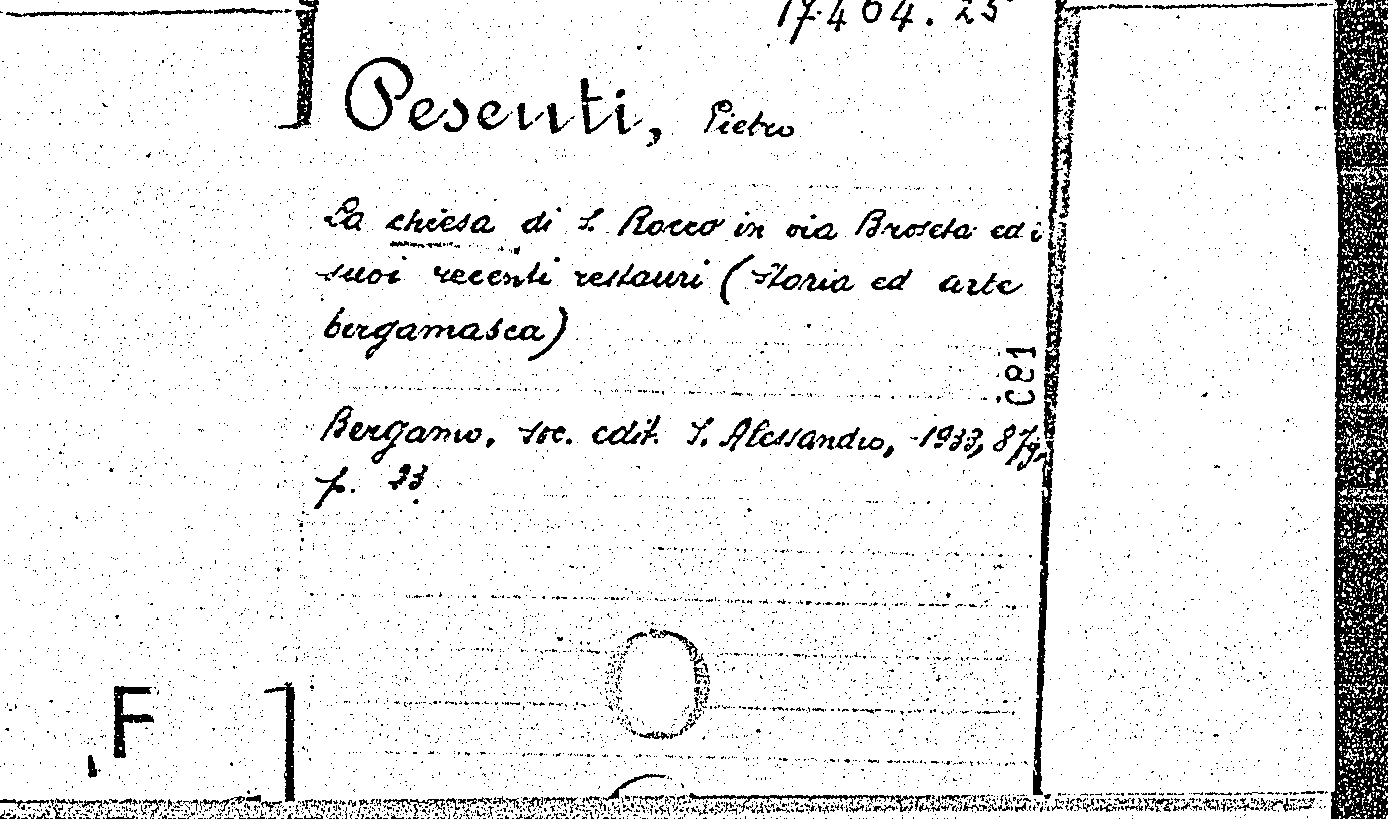 17.464.25
Pesenti, Pietro
La chiesa di S. Rocco in via Broseta ed i
suoi recenti restauri (Storia ed arte
bergamasca)
C81
Bergamo, soc. edit. S. Alessandro, 1933, 8/g,
p. 23.
F